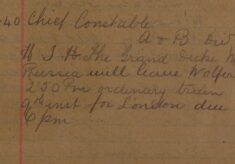 40 Chief Constable
A & B Div
H I H The Grand Duke M
Russia will leave Wolfer
2 30 Pm ordinary train
9th inst for London due
6 pm